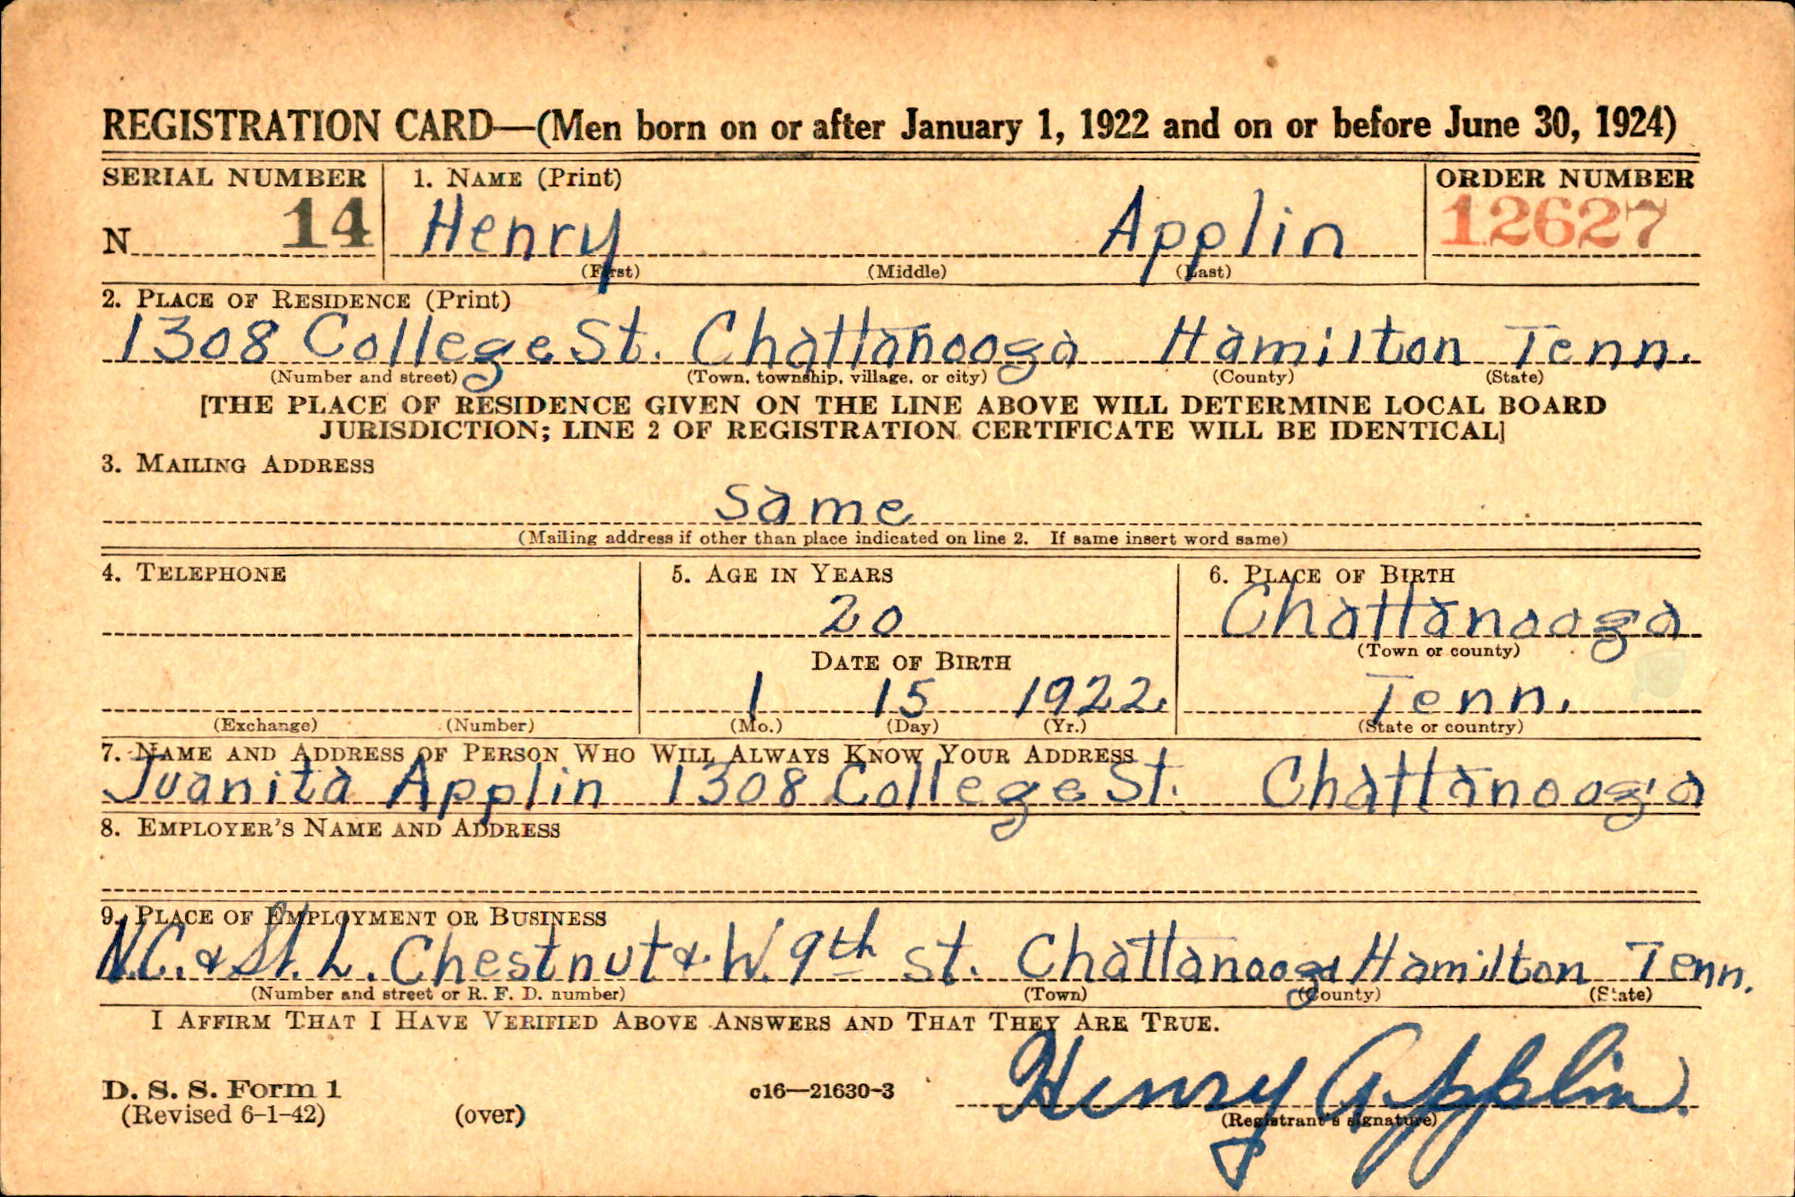 REGISTRATION CARD—(Men born on or after January 1, 1922 and on or before June 30, 1924)
SERIAL NUMBER 1. NAME (Print) ORDER NUMBER
N 14 Henry Applin 12627
(First) (Middle) (Last)
2. PLACE OF RESIDENCE (Print)
1308 College St. Chattanooga Hamilton Tenn.
(Number and street) (Town, township, village, or city) (County) (State)
[THE PLACE OF RESIDENCE GIVEN ON THE LINE ABOVE WILL DETERMINE LOCAL BOARD
JURISDICTION; LINE 2 OF REGISTRATION CERTIFICATE WILL BE IDENTICAL]
3. MAILING ADDRESS
Same
(Mailing address if other than place indicated on line 2. If same insert word same)
4. TELEPHONE 5. AGE IN YEARS 6. PLACE OF BIRTH
20 Chattanooga
DATE OF BIRTH (Town or county)
1 15 1922. Tenn.
(Exchange) (Number) (Mo.) (Day) (Yr.) (State or country)
7. NAME AND ADDRESS OF PERSON WHO WILL ALWAYS KNOW YOUR ADDRESS
Juanita Applin 1308 College St. Chattanooga
8. EMPLOYER'S NAME AND ADDRESS
9. PLACE OF EMPLOYMENT OR BUSINESS
N.C. & St. L. Chestnut & W. 9th St. Chattanooga Hamilton Tenn.
(Number and street or R. F. D. number) (Town) (County) (State)
I AFFIRM THAT I HAVE VERIFIED ABOVE ANSWERS AND THAT THEY ARE TRUE.
D. S. S. Form 1 c16—21630-3 Henry Applin.
(Revised 6-1-42) (over) (Registrant's signature)